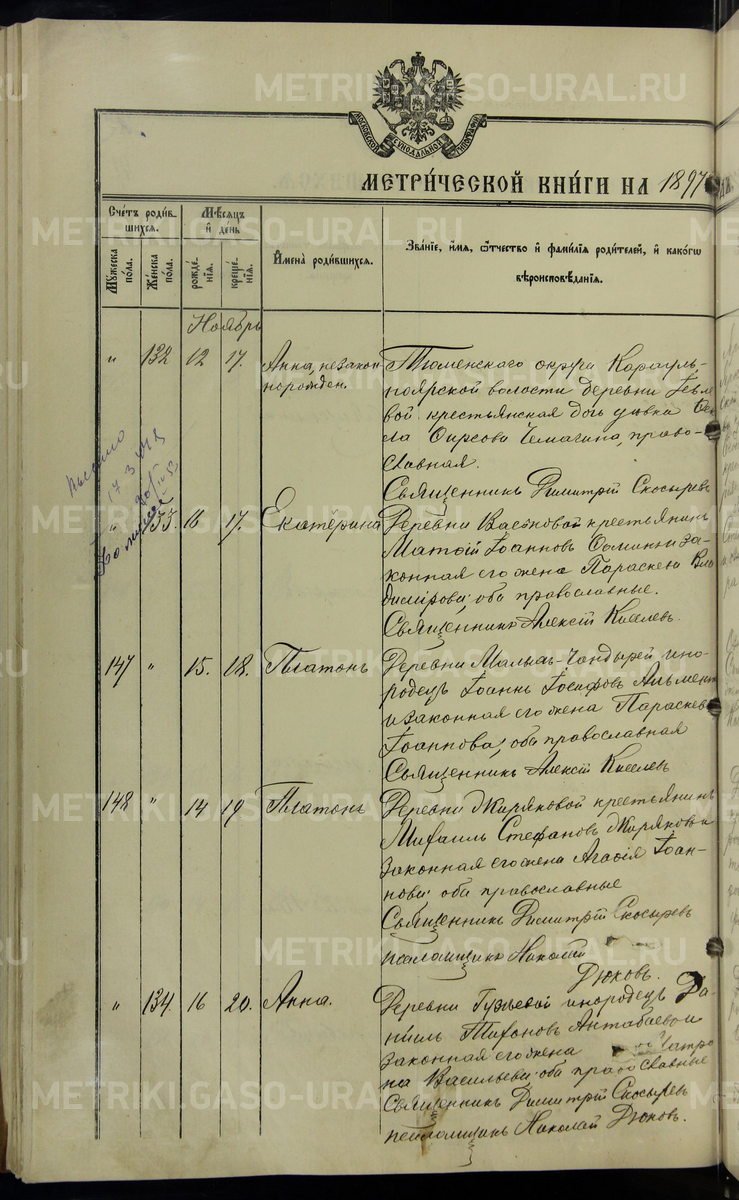 МОСКОВСКОЙ СѴНОДАЛЬНОЙ ТИПОГРАФІИ
МЕТРИ́ЧЕСКОЙ КНИ́ГИ НА 1897
Сче́тъ роди́в-
шихся.
Мѣ́сяцъ
и҆ де́нь
Мꙋ́жеска
по́ла.
Же́нска
по́ла.
рожде́-
нїѧ.
креще́-
нїѧ.
И҆мена̀ роди́вшихся.
Зва́нїе, и҆́мя, ѻ҆́тчество и҆ фами́лїя роди́телей, и҆ како́гѡ
вѣроисповѣ́данїя.
Ноябрь
" 132 12 17. Анна, незакон-
норожден.
Тюменскаго округа Караул-
ноярской волости деревни
вой крестьянская дочь девка
Фирсова Чемагина, право-
славная.
Священникъ Димитрій Скосыревъ
" 133. 16 17. Екатерина
Деревни крестьянинъ
Матѳій Іоанновъ и за-
конная его жена Параскева Вла
димірова; оба православные.
Священникъ Алексій Киселевъ.
147 " 15. 18. Платонъ
Деревни Малыхъ-Чандырей ино-
родецъ Іоаннъ Іосифовъ
и законная его жена Параскева
Іоаннова; оба православная
Священникъ Алексій Киселевъ
148 " 14 19 Платонъ
Деревни Жиряковой крестьянинъ
Михаилъ Стефановъ Жиряковъ и
законная его жена Агафія Іоан-
нова; оба православные
Священникъ Димитрій Скосыревъ
псаломщикъ Николай
Дюковъ.
" 134. 16 20. Анна.
Деревни инородецъ Да-
ніилъ Тихоновъ и
законная его жена Матро
на Васильева; оба православные
Священникъ Димитрій Скосыревъ
псаломщикъ Николай Дюковъ.
METRIKI.GASO-URAL.RU